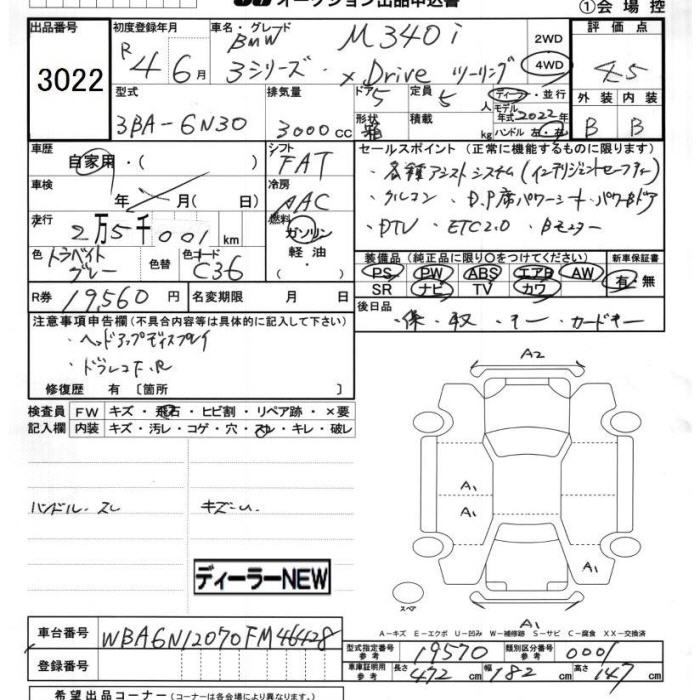 オークション出品申込書
①会場控
出品番号 初度登録年月 車名・グレード 評価点
3022
R 4年 6月
BMW M340i
3シリーズ xDrive ツーリング
2WD
4WD
4.5
型式 排気量 ドア 定員 ディーラー・並行 外装 内装
3BA-6N30 3000cc 5 5人
モデル年式 2022年
形状 積載 kg ハンドル 左・右
B B
車歴 シフト セールスポイント (正常に機能するものに限ります)
自家用・( ) FAT
・各種アシストシステム(インテリジェントセーフティー)
車検 冷房
年 月( 日) AAC
・クルコン ・D.P席パワーシート・パワーBドア
走行 燃料
2万5千001km ガソリン
軽油
・DTV ・ETC2.0 ・Bモニター
色 色替 色コード
ドラバイトグレー C36
装備品 (純正品に限り○をつけてください) 新車保証書
PS PW ABS エアB AW
SR ナビ TV カワ 有・無
R券 19,560円 名変期限 月 日
後日品
・保・取・キー・カードキー
注意事項申告欄(不具合内容等は具体的に記入して下さい)
・ヘッドアップディスプレイ
・ドラレコF.R
修復歴 有〔箇所 〕
検査員記入欄
FW キズ・飛石・ヒビ割・リペア跡・×要
内装 キズ・汚レ・コゲ・穴・スレ・キレ・破レ
A2
A1
A1
A1
ハンドル・スレ キズ・ハ
ディーラーNEW
スペア
A-キズ E-エクボ U-凹み W-補修跡 S-サビ C-腐食 XX-交換済
車台番号 WBA6N12070FM46428
型式指定番号 参考 19570 類別区分番号 参考 0001
登録番号
車庫証明用 参考 長さ 472cm 幅 182cm 高さ 147cm
希望出品コーナー(コーナーは各会場により異なります)